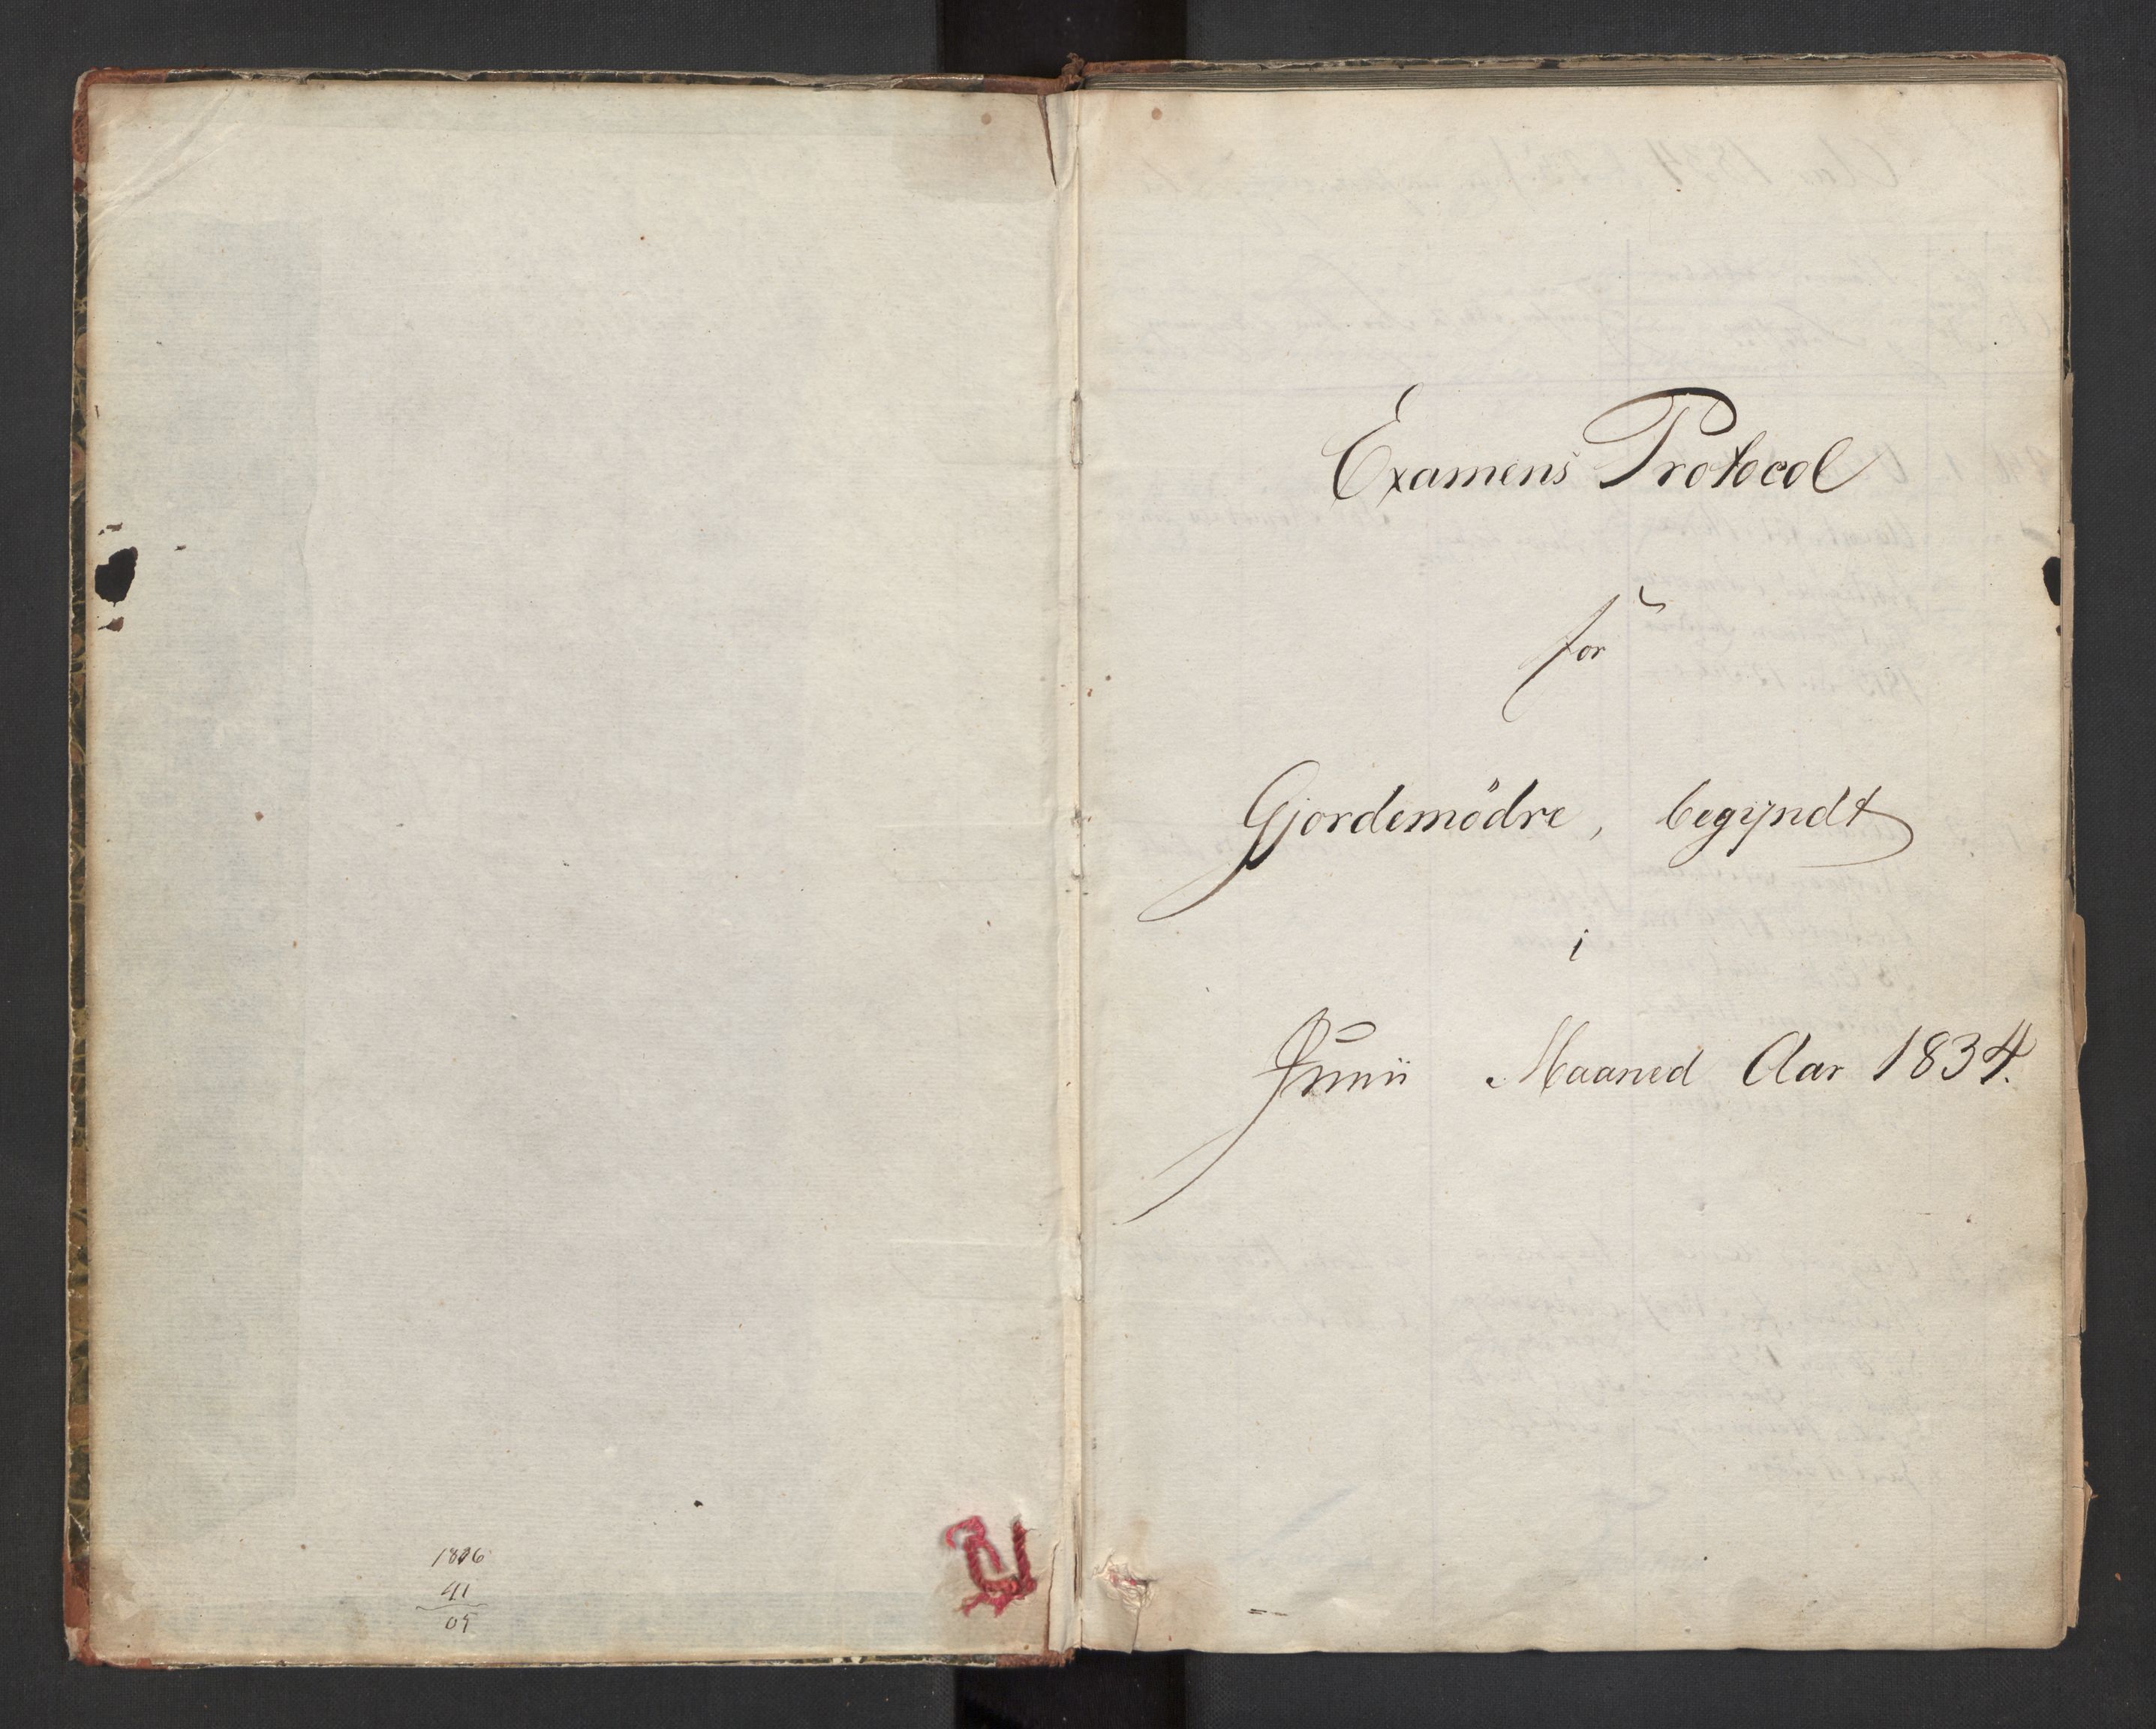 1806
41
05
Examens Protocol
for
Gjordemödre, begyndt
i
Junii Maaned Aar 1834.